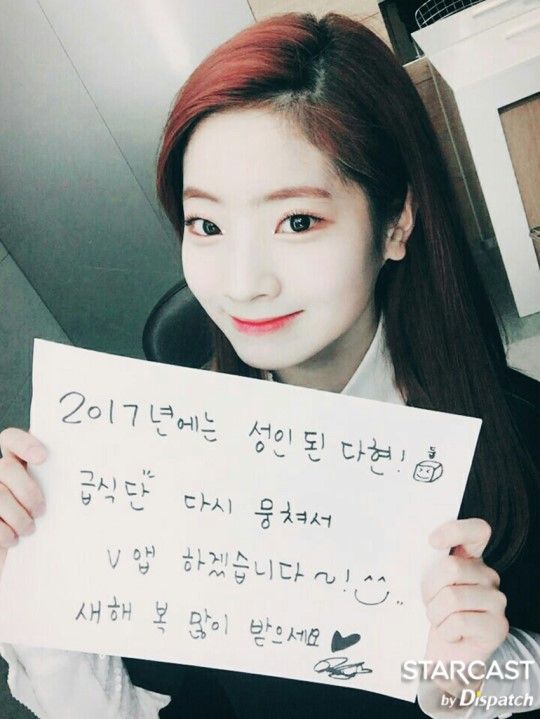 2017년에는 성인된 다현!
급식단 다시 뭉쳐서
V앱 하겠습니다~!
새해 복 많이 받으세요
STARCAST
by Dispatch